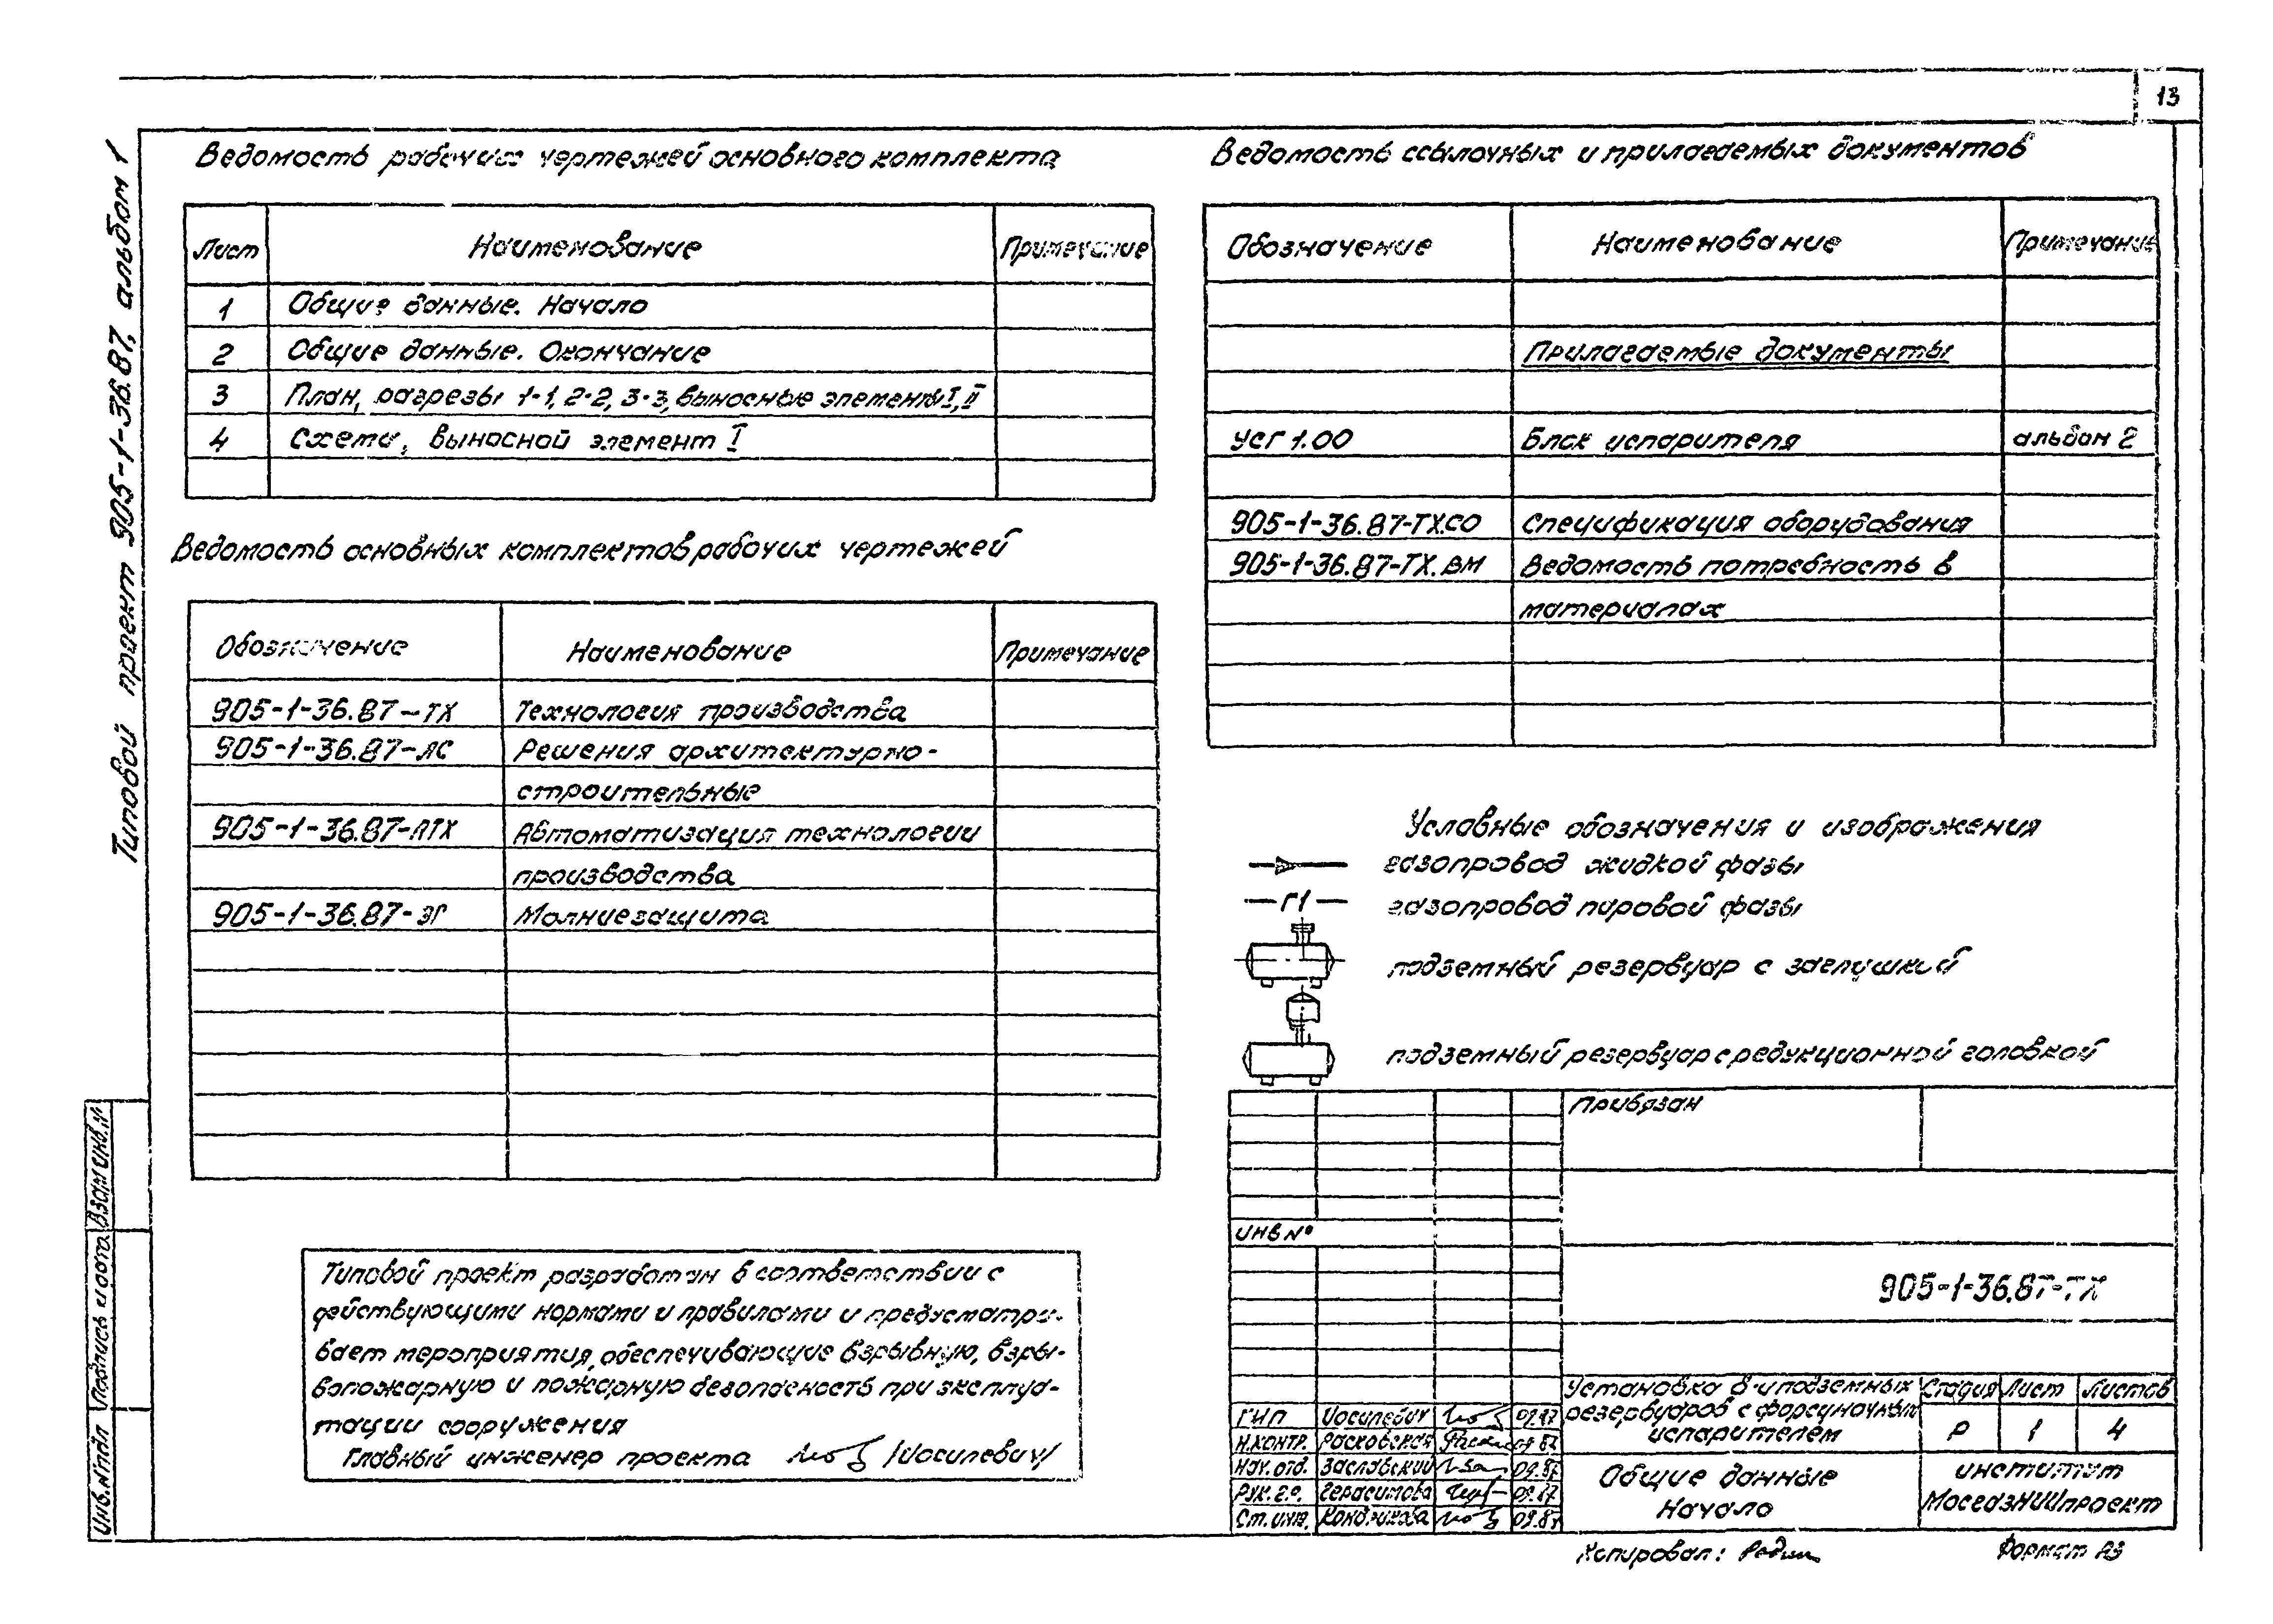 13
Типовой проект 905-1-36.87, альбом 1
Ведомость рабочих чертежей основного комплекта
Лист Наименование Примечание
1 Общие данные. Начало
2 Общие данные. Окончание
3 План, разрезы 1-1, 2-2, 3-3, выносные элементы I, II
4 Схема, выносной элемент I
Ведомость основных комплектов рабочих чертежей
Обозначение Наименование Примечание
905-1-36.87-ТХ Технология производства
905-1-36.87-АС Решения архитектурно-
строительные
905-1-36.87-АТХ Автоматизация технологии
производства
905-1-36.87-ЭГ Молниезащита
Типовой проект разработан в соответствии с
действующими нормами и правилами и предусматри-
вает мероприятия, обеспечивающие взрывную, взры-
вопожарную и пожарную безопасность при эксплуа-
тации сооружения
Главный инженер проекта /Иосилевич/
Ведомость ссылочных и прилагаемых документов
Обозначение Наименование Примечание
Прилагаемые документы
УСГ 1.00 Блок испарителя альбом 2
905-1-36.87-ТХ.СО Спецификация оборудования
905-1-36.87-ТХ.ВМ Ведомость потребность в
материалах
Условные обозначения и изображения
газопровод жидкой фазы
Г1 газопровод паровой фазы
подземный резервуар с заглушкой
подземный резервуар с редукционной головкой
Привязан
ИНВ №
905-1-36.87-ТХ
Установка 8-и подземных
резервуаров с форсуночным
испарителем
Стадия Лист Листов
Р 1 4
ГИП Иосилевич 09.87
Н.контр. Расковская 09.87
Нач. отд. Заславский 09.87
Рук. гр. Герасимова 09.87
Ст. инж. 09.87
Общие данные
Начало
институт
МосгазНИИпроект
Копировал: Формат А3
Взам инв. №
Подпись и дата
Инв. № подл